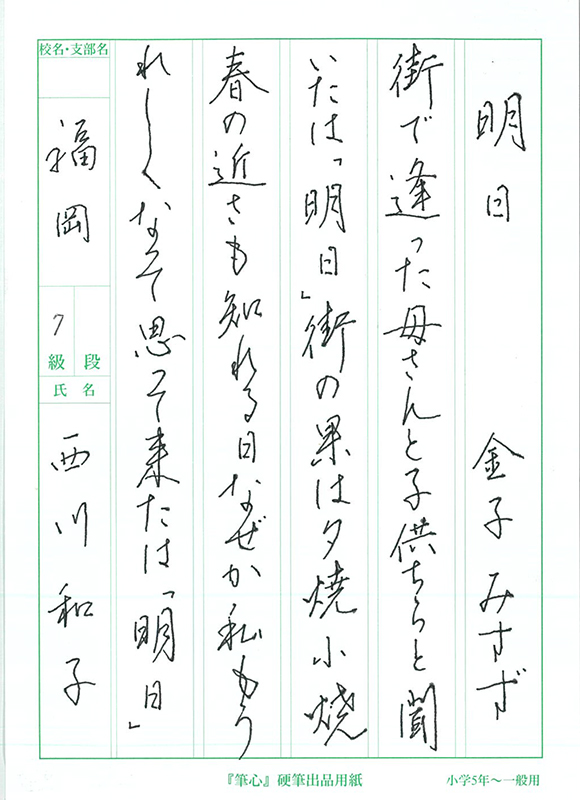 明日　金子みすゞ
街で逢った母さんと子供ちらと聞
いたは「明日」街の果は夕焼小焼
春の近さも知れる日なぜか私もう
れしくなって思って来たは「明日」
校名・支部名
福岡
7
級 段
氏名
西川和子
『筆心』硬筆出品用紙
小学5年～一般用